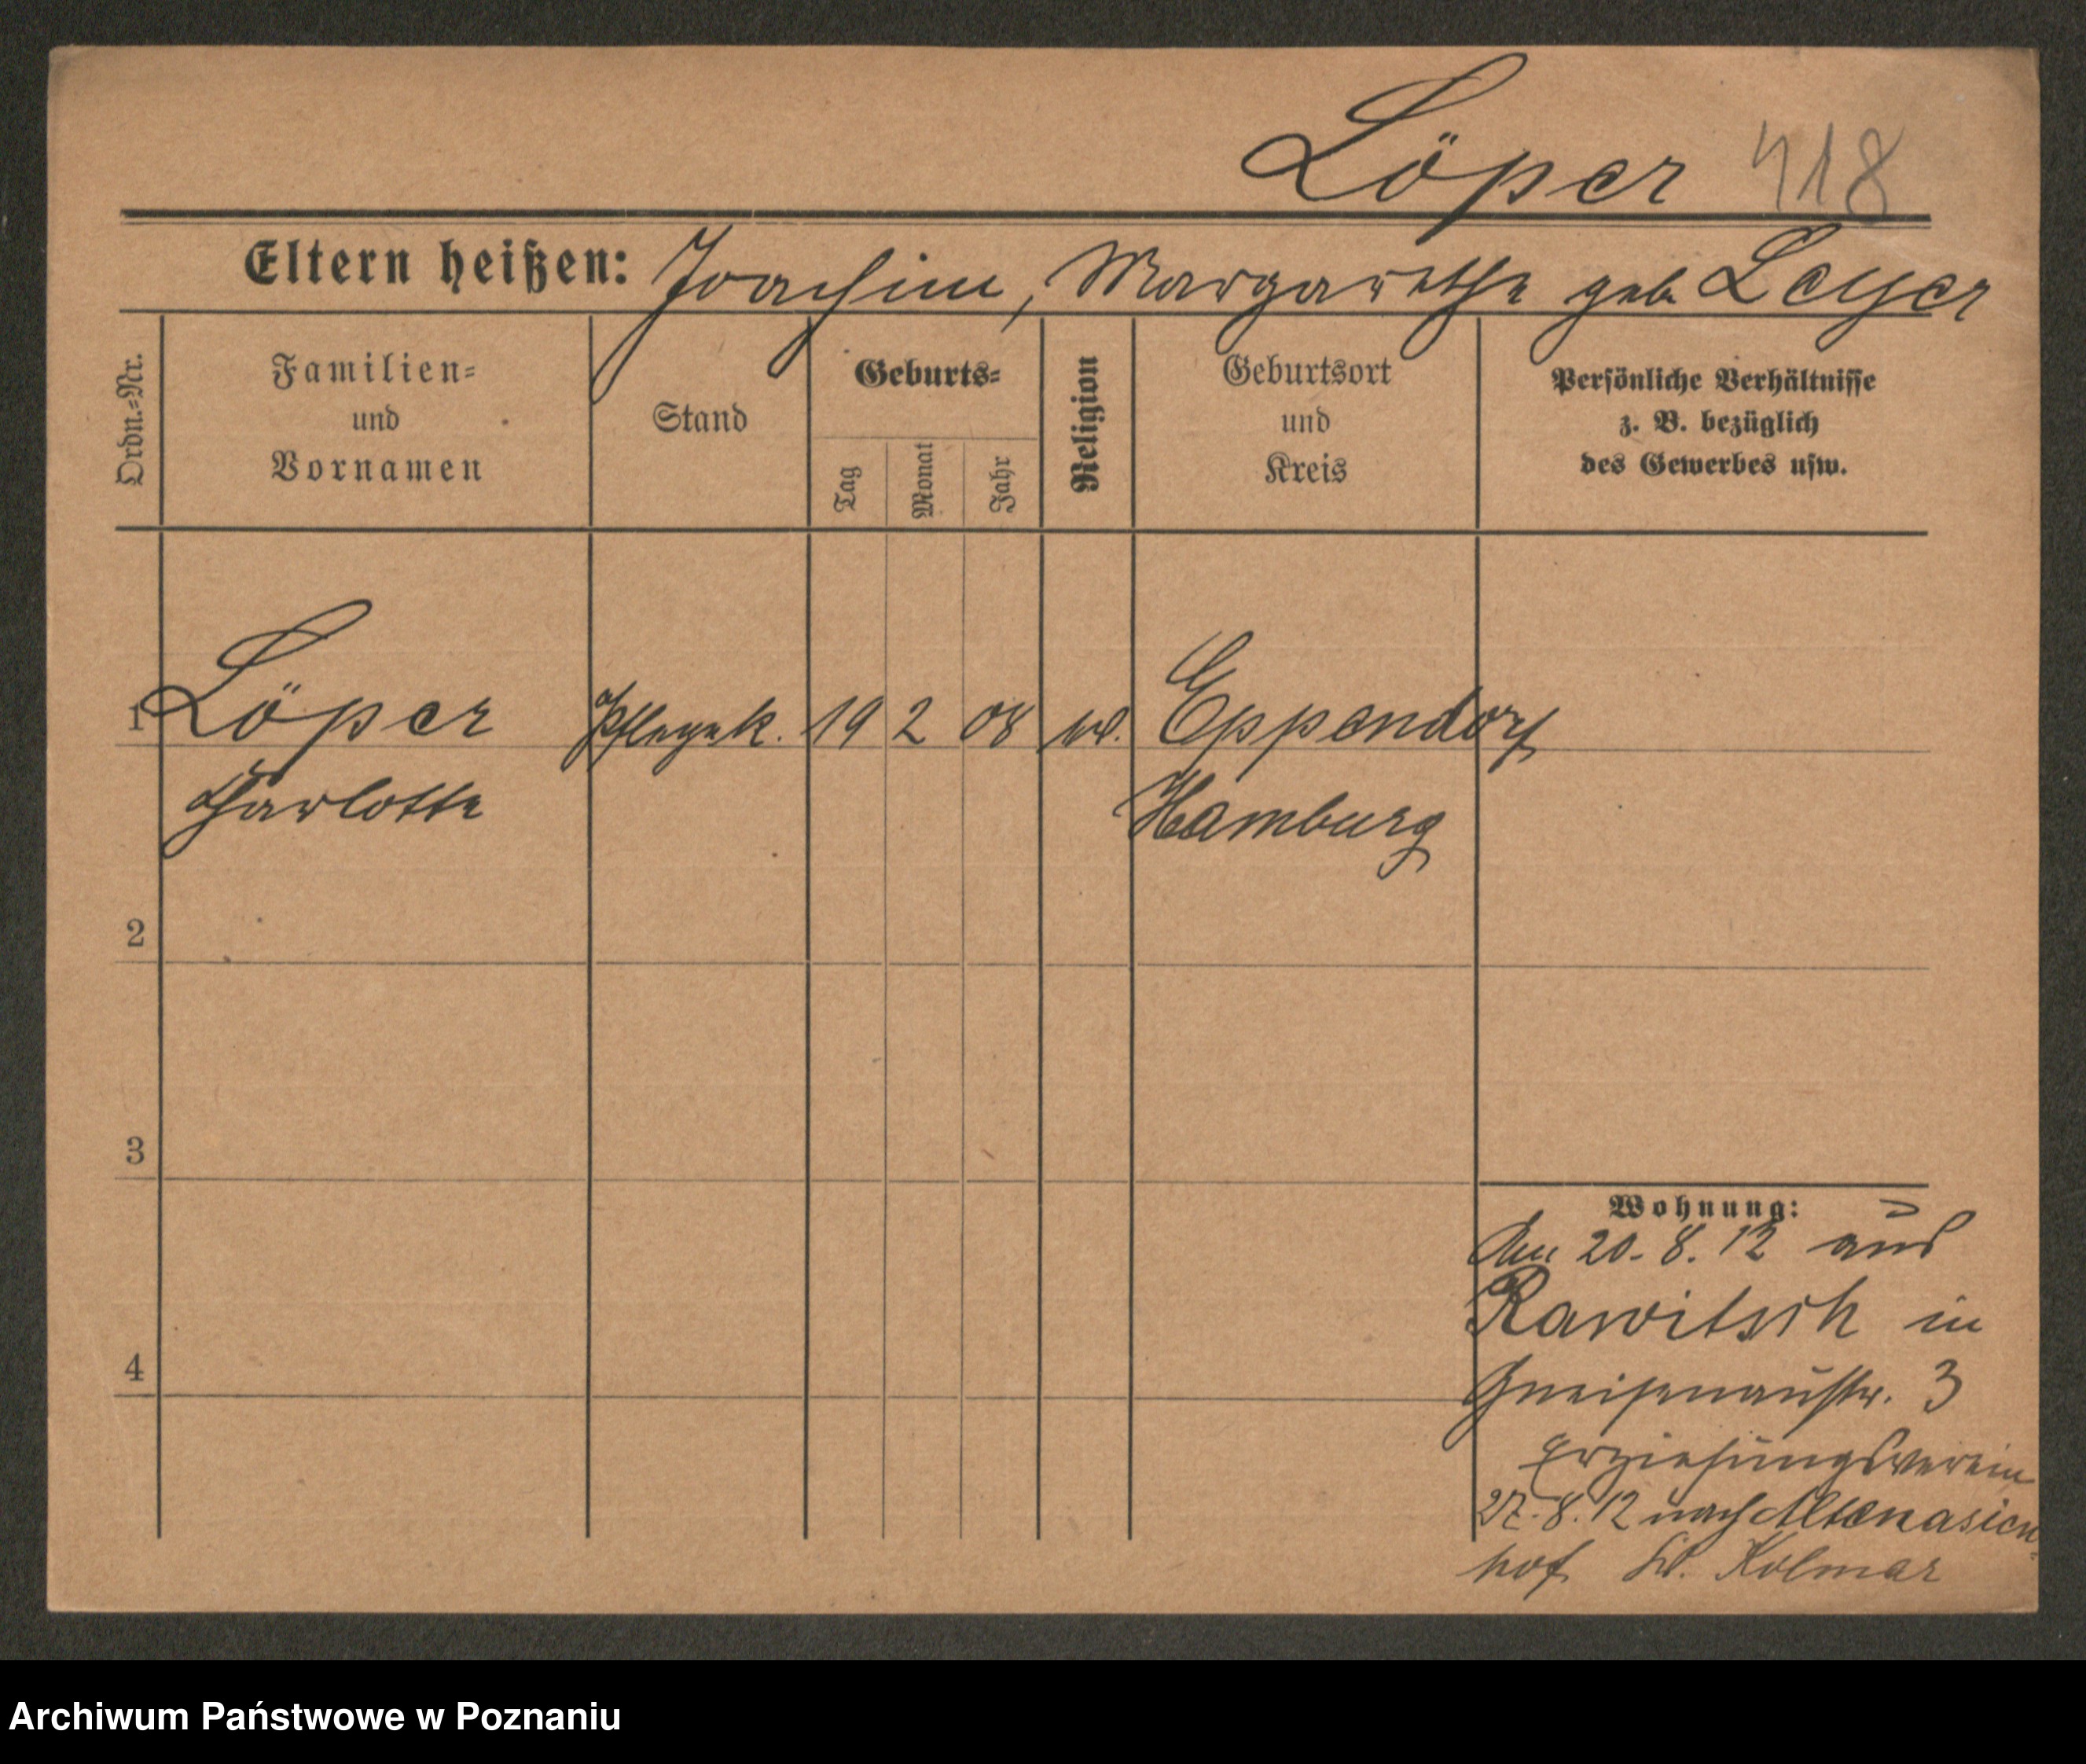 Löper 418
Eltern heißen: Joachim, Margarethe geb. Leyer
Ordn.=Nr.
Familien=
und
Vornamen
Stand
Geburts=
Tag
Monat
Jahr
Religion
Geburtsort
und
Kreis
Persönliche Verhältnisse
z. B. bezüglich
des Gewerbes usw.
1 Löper Pflegek. 19 2 08 Eppendorf
Charlotte Hamburg
2
3
4
Wohnung:
Am 20.8.12 aus
Rawitsch in
Gneisenaustr. 3
Erziehungsverein
27.8.12 nach
hof Kolmar
Archiwum Państwowe w Poznaniu